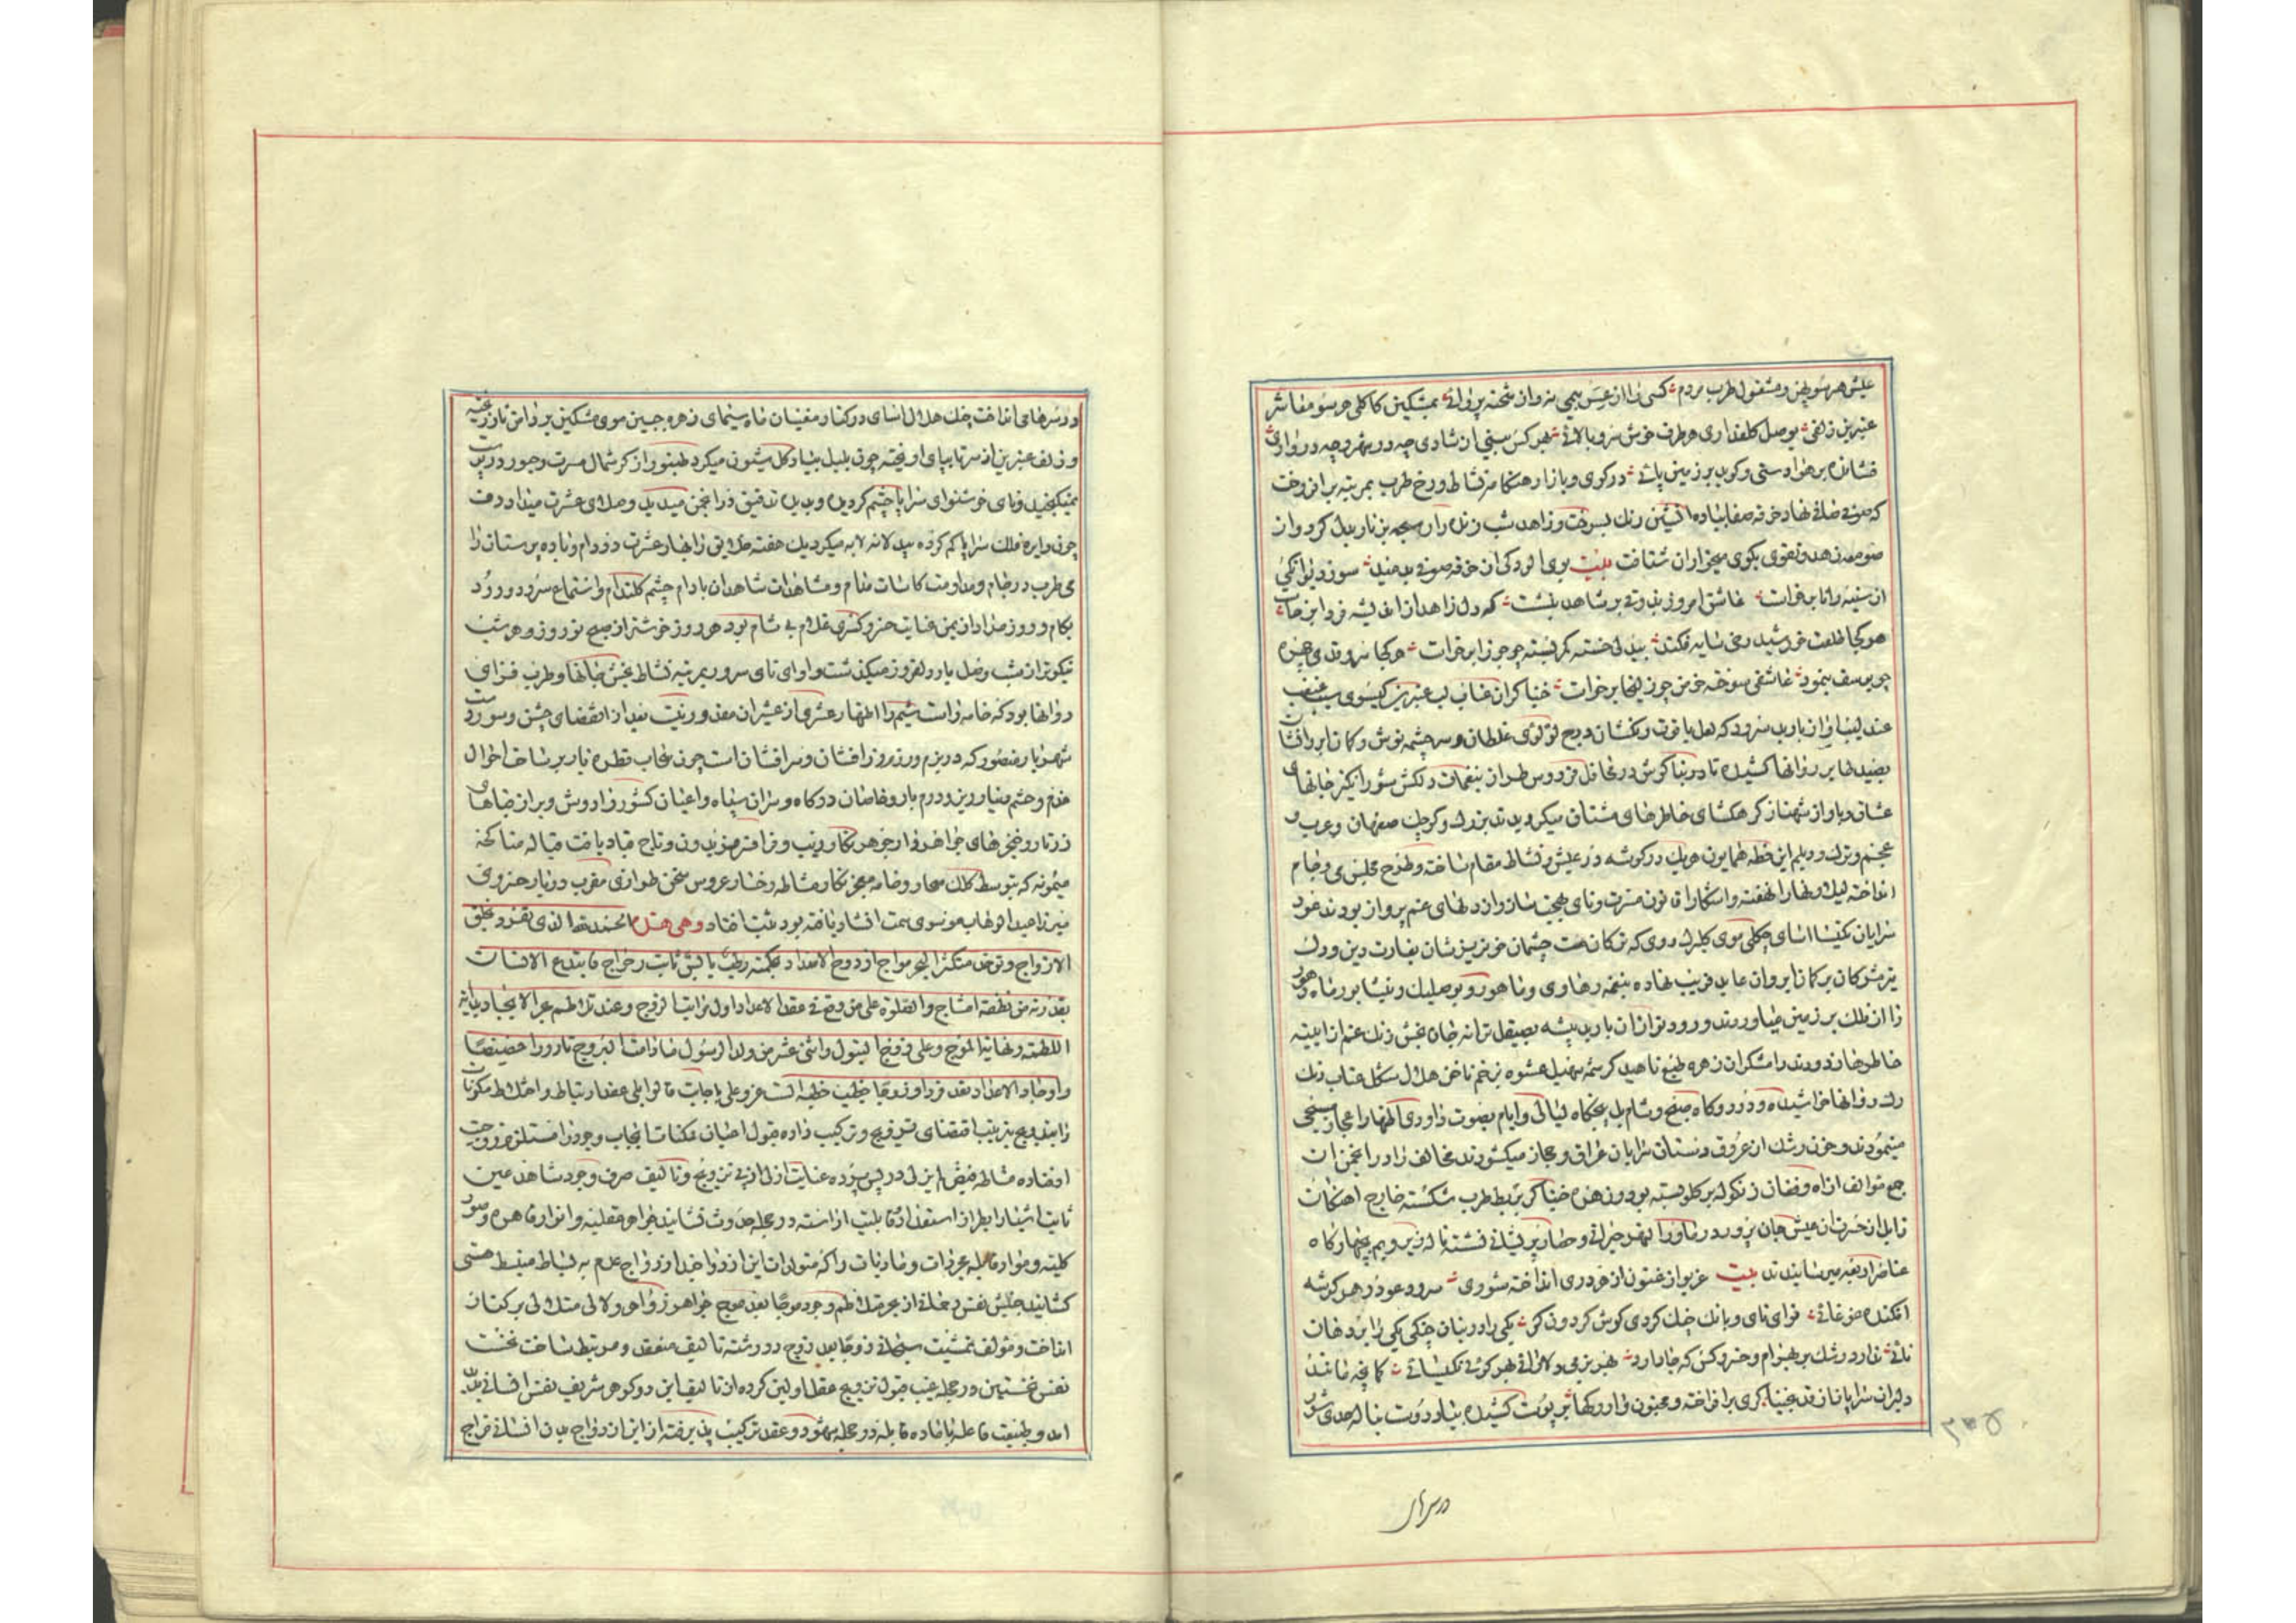 عیش هر سو پهن و مشغول طرب مردم کسی را از عسس بیمی نه و از شحنه پروائی بمشکین کاکلی هر سو معاشر
عنبرین زلفی بوصل کلعذاری هر طرف خوش سرو بالائی بهر کس بینی از شادی چه در شهر و چه در وادی
فشانده بر هوا دستی و کوبد بر زمین پائی در کوی و بازار هنکامه نشاط و رخ طرب بمرتبه برافروخت
که صوفی صافی نهاد خرقه صفا بباده آتشین رنک بسوخت و زاهد شب زنده دار سبحه بزنار بدل کرد و از
صومعه زهد و تقوی بکوی میخواران شتافت بیت بوی آلودکی از خرقه صوفی بدمید سوز دیوانکی
از سینه دانا برخاست عاشق امروز بذوقی بر شاهد بنشست که دل زاهد از اندیشه فردا برخاست
هر کجا طلعت خورشید رخی سایه فکند بیدلی خسته کمر بسته چو جوزا برخاست هر کجا سرو قدی چهره
چو یوسف بنمود عاشقی سوخته خرمن چو زلیخا برخاست خنیاکران عناب لب عنبرین کیسوی سیب غبغب
عندلیب آواز باربد سرود که لعل یاقوت رنکشان درج لؤلؤی غلطان و سرچشمه نوش و کمان ابروانشان
بصید طایر روانها کشیده تا در بناکوش در محافل فردوس طراز بنغمات دلکش شورانکیز جانهای
عشاق و باواز شهناز کره کشای خاطرهای مشتاق میکردیدند بزرک و کوچک صفهان و عرب و
عجم و ترک و دیلم این خطه همایون هر یک در کوشه در عیش و نشاط مقام ساخته و طرح مجلس می و جام
انداخته لیل و نهار نهفته و آشکارا قانون مسرت و نای بهجت ساز و از دلهای غم پرواز بودند عود
سرایان نکیسا آسای چکلی موی کلبرک روی که ترکان مست چشمان خونریزشان بغارت دین و دل
تیر مژکان بر کمان ابروان عابد فریب نهاده بنغمه رهاوی و ماهور و بوسلیک و نیشابور ماه و هور
را از فلک بر زمین میاوردند و رود نوازان باربد پیشه بصیقل ترانه جان بخش زنک غم از آیینه
خاطرها زدودند رامشکران زهره طبع ناهید کرشمه سهیل عشوه بزخم ناخن هلال شکل عناب رنک
رک روانها خراشیده و در دوکاه صبح و شام بل پنجکاه لیالی و ایام بصوت داودی اظهار اعجاز مسیحی
مینمودند و خون رشک از عروق دستان سرایان عراق و حجاز میکشودند مخالف را در انجمن انس
جمع موالف از آه و فغان زنکوله بر کلو بسته بود و زهره خنیاکر بربط طرب شکسته خارج آهنکان
زابل از حسرت این عیش جان پرور در ماورا النهر حیرانی و حصار پریشانی نشسته ناله زیر و بم بچهارکاه
عناصر اربعه میرسانیدند بیت غریو ارغنون از هر دری انداخته شوری سرود عود در هر کوشه
افکنده غوغائی نوای نای و بانک چنک کردی کوش کردون کر یکی را در بنان چنکی یکی را بر دهان
نائی ندارد رشک بر بهرام و خسرو کس که جا دارد بهر بزمی دلارائی بهر کوئی نکیسائی کمانچه مانند
دلبران سراپا ناز قد بخنیاکری برافراخته و مجنون وار رکها بر پوست کشیده بنیاد دوست بناله حدی شور
در سرها
در سرها می انداخت چنک هلال آسای در کنار مغنیان ماه سیمای زهره جبین موی مشکین بر دامن ناز ریخته
و زلف عنبرین از سر تا بپای آویخته چون بلبل بیاد کل شیون میکرد طنبور از کرشمال مسرت و جور در پوست
نمیکنجید و نای خوشنوای سراپا چشم کردیده و بدیده تدقیق در انجمن میدید و صلای عشرت میداد دف
چون دایره فلک سراپا کم کرده بیدلانه لابه میکرد یک هفته خلایق را بهار عشرت در دوام و باده پرستان را
می طرب در جام و مداومت کاسات مدام و مشاهدات شاهدان بادام چشم کلندام و استماع سرود و رود
بکام و روز مراد از یمن عنایت خسرو کسری غلام بی شام بود هر روز خوشتر از صبح نوروز و هر شب
نیکوتر از شب وصل یار دلفروز میکذشت و آوای نای سرور بمرتبه نشاط بخش جانها و طرب فزای
روانها بود که خامه راست شیم را اظهار عشری از عشیر آن مقدور نیست بعد از انقضای جشن و سور دست
شهریار منصور که در بزم و رزم زر افشان و سر افشان است چون سحاب قطره بار بر ساحت احوال
خدم و حشم دینار ریز و درم بار و خاصان درکاه و سران سپاه و اعیان کشور را دوش و بر از قباهای
زرتار و خنجرهای جواهر وار جوهر نکار و زیب و فر افسر فریدون و تاج قباد یافت قباله مناکحه
میمونه که بتوسط کلک سحار و خامه معجز نکار مشاطه رخسار عروس سخن طرازی مقرب دربار خسروی
میرزا عبدالوهاب موسوی سمت انشاد یافته بود ثبت افتاد و هی هذه الحمد لله الذی تفرد بخلق
الازواج و توحد متکثرا لبحر مواج ازدوج الاضداد بحکمته رطب یابس ثابت رجراج فابتدع الانسان
بقدرته من نطفة امشاج و الصلوة علی من وقع فی عقد الاعداد اول مراتب الزوج و عند تلاطم بحر الایجاد بدایة
اللطمة و نهایة الموج و علی زوج البتول و اثنی عشر من ولد الرسول مادامت البروج تارور احضیضا
و اوجا و الاعداد بعد فردا و زوجا خطیب خطبه الست عز و علی باجابت قالوا بلی عقد ارتباط و اختلاط مکونات
را بتدویج بترتیب اقتضای ترویج و ترکیب داده قبول اعیان ممکنات ایجاب وجود را مستلزم زوجیت
افتاده مشاطه فیض لم یزلی در پس پرده عنایت ازلی از پی تزویج و تالیف صرف وجود شاهد عین
ثابت اشیا را بطراز استعداد قابلیت آراسته در حجله حدوث نشانید جواهر عقلیه و انوار قاهره و صور
کلیه و مواد قابله مجردات و مادیات را که متولدات این ازدواجند از زواج عدم به بساط منبسط هستی
کشانید جنبش نفس رحمانی از بحر متلاطم وجود موجا بعد موج جواهر زواهر و لآلی متلالی بر کنار
انداخت و مولف مشیت سبحانی زوجا بعد زوج در رشته تالیف منعقد و مرتبط ساخت نخست
نفس نخستین در حجله غیب قبول تزویج عقل اولین کرده از تالیف این دو کوهر شریف نفس انسانی پدید
آمد و طبیعت فاعله با ماده قابله در حجله شهود و عقد ترکیب پذیرفته از این ازدواج بدن انسانی نتاج